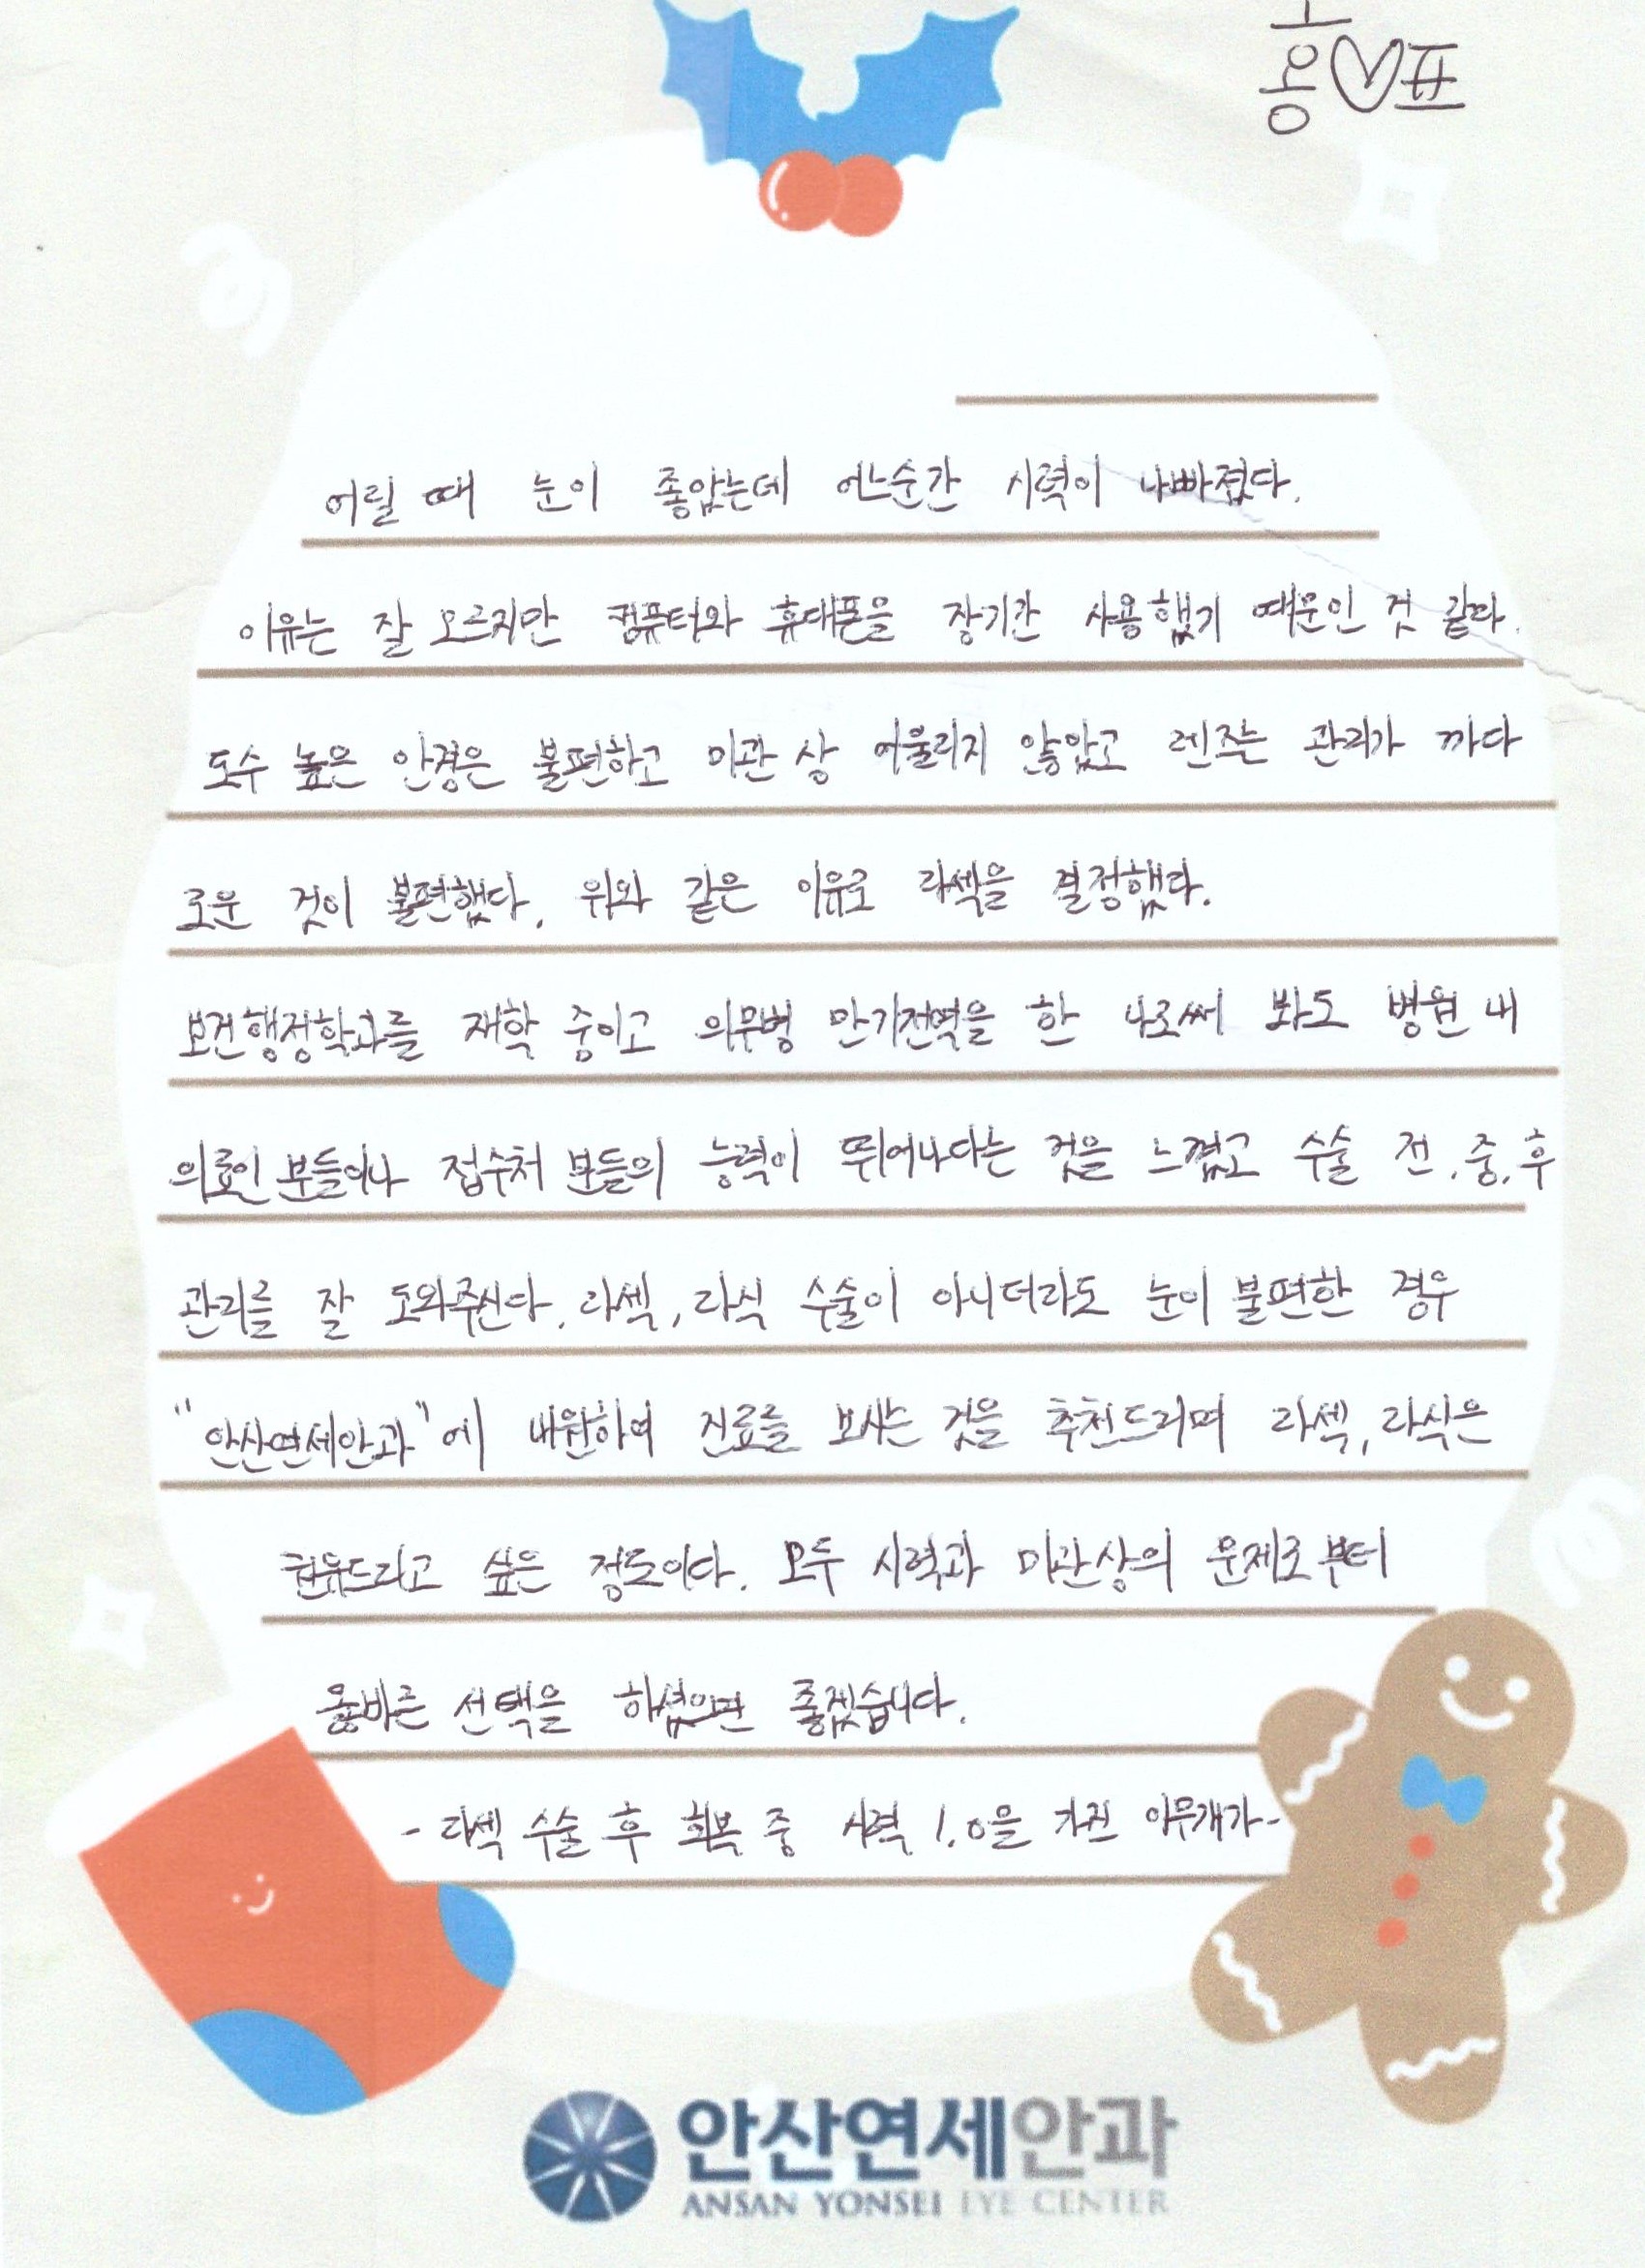 홍♡표
어릴 때 눈이 좋았는데 어느순간 시력이 나빠졌다.
이유는 잘 모르지만 컴퓨터와 휴대폰을 장기간 사용했기 때문인 것 같다.
도수 높은 안경은 불편하고 미관 상 어울리지 않았고 렌즈는 관리가 까다
로운 것이 불편했다. 위와 같은 이유로 라섹을 결정했다.
보건행정학과를 재학 중이고 의무병 만기전역을 한 나로써 봐도 병원 내
의료인 분들이나 접수처 분들의 능력이 뛰어나다는 것을 느꼈고 수술 전.중.후
관리를 잘 도와주신다. 라섹, 라식 수술이 아니더라도 눈이 불편한 경우
"안산연세안과"에 내원하여 진료를 보시는 것을 추천드리며 라섹, 라식은
권유드리고 싶은 정도이다. 모두 시력과 미관상의 문제로부터
옳바른 선택을 하셨으면 좋겠습니다.
- 라섹 수술 후 회복 중 시력 1.0을 가진 아무개가-
안산연세안과
ANSAN YONSEI EYE CENTER